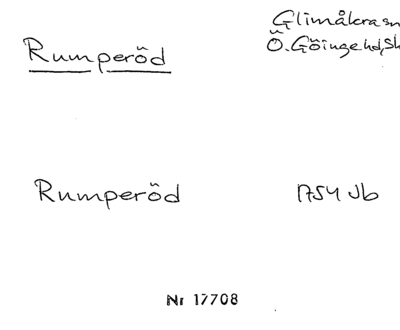 Rumperöd
Glimåkra sn
Ö. Göinge hd, Sk
Rumperöd
1754 Jb
Nr 17708